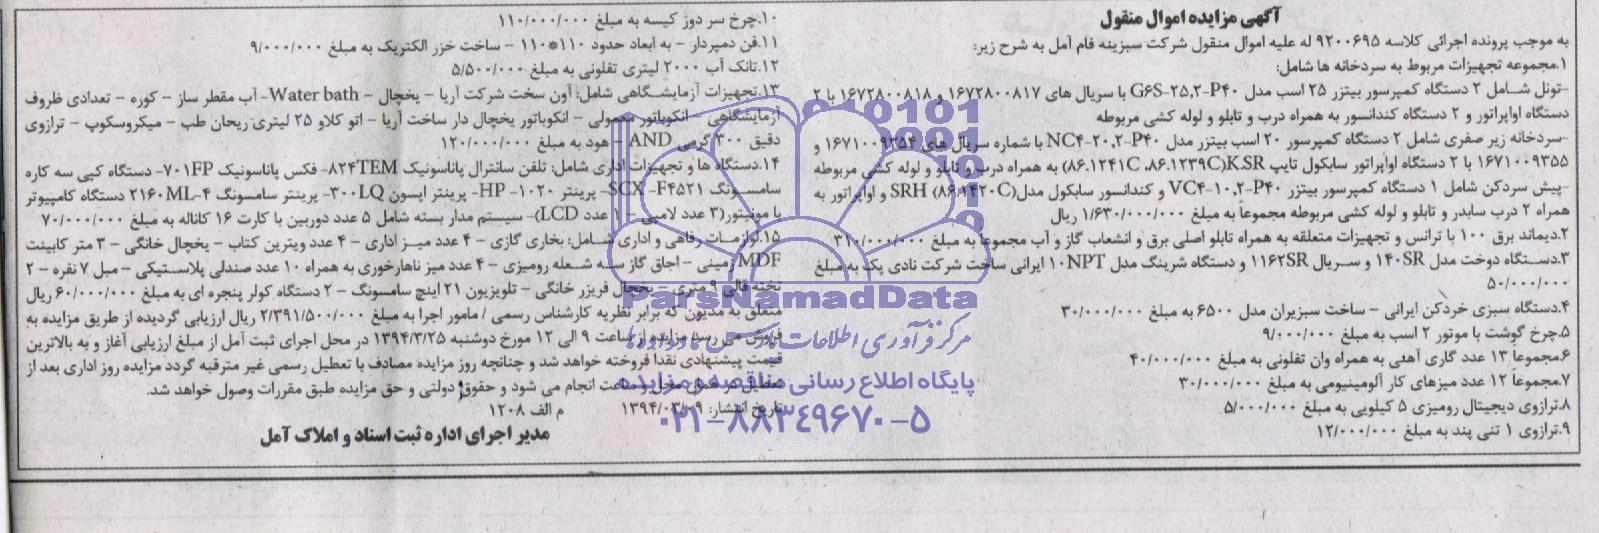 آگهی مزایده اموال منقول
به موجب پرونده اجرائی کلاسه ۹۲۰۰۶۹۵ له علیه اموال منقول شرکت سبزینه فام آمل به شرح زیر:
۱.مجموعه تجهیزات مربوط به سردخانه ها شامل:
-تونل شامل ۲ دستگاه کمپرسور بیتزر ۲۵ اسب مدل G۶S-۲۵.۲-P۴۰ با سریال های ۱۶۷۲۸۰۰۸۱۷ و ۱۶۷۲۸۰۰۸۱۸ با ۲
دستگاه اواپراتور و ۲ دستگاه کندانسور به همراه درب و تابلو و لوله کشی مربوطه
-سردخانه زیر صفری شامل ۲ دستگاه کمپرسور ۲۰ اسب بیتزر مدل NC۴-۲۰.۲-P۴۰ با شماره سریال های ۱۶۷۱۰۰۹۳۵۴ و
۱۶۷۱۰۰۹۳۵۵ با ۲ دستگاه اواپراتور سابکول تایپ K.SR(۸۶.۱۲۳۹C، ۸۶.۱۲۴۱C) به همراه درب و تابلو و لوله کشی مربوطه
-پیش سردکن شامل ۱ دستگاه کمپرسور بیتزر VC۴-۱۰.۲-P۴۰ و کندانسور سابکول مدل SRH (۸۶.۱۴۲۰C) و اواپراتور به
همراه ۲ درب سایدر و تابلو و لوله کشی مربوطه مجموعاً به مبلغ ۱/۶۳۰/۰۰۰/۰۰۰ ریال
۲.دیماند برق ۱۰۰ با ترانس و تجهیزات متعلقه به همراه تابلو اصلی برق و انشعاب گاز و آب مجموعاً به مبلغ ۳۱۰/۰۰۰/۰۰۰
۳.دستگاه دوخت مدل ۱۴۰SR و سریال ۱۱۶۲SR و دستگاه شرینگ مدل ۱۰NPT ایرانی ساخت شرکت نادی پک به مبلغ
۵۰/۰۰۰/۰۰۰
۴.دستگاه سبزی خردکن ایرانی - ساخت سبزیران مدل ۶۵۰۰ به مبلغ ۳۰/۰۰۰/۰۰۰
۵.چرخ گوشت با موتور ۲ اسب به مبلغ ۹/۰۰۰/۰۰۰
۶.مجموعاً ۱۳ عدد گاری آهنی به همراه وان تفلونی به مبلغ ۴۰/۰۰۰/۰۰۰
۷.مجموعاً ۱۲ عدد میزهای کار آلومینیومی به مبلغ ۳۰/۰۰۰/۰۰۰
۸.ترازوی دیجیتال رومیزی ۵ کیلویی به مبلغ ۵/۰۰۰/۰۰۰
۹.ترازوی ۱ تنی پند به مبلغ ۱۲/۰۰۰/۰۰۰
۱۰.چرخ سر دوز کیسه به مبلغ ۱۱۰/۰۰۰/۰۰۰
۱۱.فن دمپردار - به ابعاد حدود ۱۱۰*۱۱۰ - ساخت خزر الکتریک به مبلغ ۹/۰۰۰/۰۰۰
۱۲.تانک آب ۲۰۰۰ لیتری تفلونی به مبلغ ۵/۵۰۰/۰۰۰
۱۳.تجهیزات آزمایشگاهی شامل: آون سخت شرکت آریا - یخچال - Water bath- آب مقطر ساز - کوره - تعدادی ظروف
آزمایشگاهی - انکوباتور معمولی - انکوباتور یخچال دار ساخت آریا - اتو کلاو ۲۵ لیتری ریحان طب - میکروسکوپ - ترازوی
دقیق ۳۰۰ گرمی AND - هود به مبلغ ۱۲۰/۰۰۰/۰۰۰
۱۴.دستگاه ها و تجهیزات اداری شامل: تلفن سانترال پاناسونیک ۸۲۴TEM- فکس پاناسونیک ۷۰۱FP- دستگاه کپی سه کاره
سامسونگ SCX-F۴۵۲۱- پرینتر ۱۰۲۰-HP- پرینتر اپسون ۳۰۰LQ- پرینتر سامسونگ ۲۱۶۰ML-۴ دستگاه کامپیوتر
با مونیتور(۳ عدد لامپی - ۱ عدد LCD)- سیستم مدار بسته شامل ۵ عدد دوربین با کارت ۱۶ کاناله به مبلغ ۷۰/۰۰۰/۰۰۰
۱۵.لوازمات رفاهی و اداری شامل: بخاری گازی - ۴ عدد میز اداری - ۴ عدد ویترین کتاب - یخچال خانگی - ۳ متر کابینت
MDF زمینی - اجاق گاز سه شعله رومیزی - ۴ عدد میز ناهارخوری به همراه ۱۰ عدد صندلی پلاستیکی - مبل ۷ نفره - ۲
تخته قالی ۹ متری - یخچال فریزر خانگی - تلویزیون ۲۱ اینچ سامسونگ - ۲ دستگاه کولر پنجره ای به مبلغ ۶۰/۰۰۰/۰۰۰ ریال
متعلق به مدیون که برابر نظریه کارشناس رسمی / مامور اجرا به مبلغ ۲/۳۹۱/۵۰۰/۰۰۰ ریال ارزیابی گردیده از طریق مزایده به
فروش می رسد مزایده از ساعت ۹ الی ۱۲ مورخ دوشنبه ۱۳۹۴/۳/۲۵ در محل اجرای ثبت آمل از مبلغ ارزیابی آغاز و به بالاترین
قیمت پیشنهادی نقدا فروخته خواهد شد و چنانچه روز مزایده مصادف با تعطیل رسمی غیر مترقبه گردد مزایده روز اداری بعد از
تعطیل در همان محل و ساعت انجام می شود و حقوق دولتی و حق مزایده طبق مقررات وصول خواهد شد.
تاریخ انتشار: ۱۳۹۴/۰۳/۰۹ م الف ۱۲۰۸
مدیر اجرای اداره ثبت اسناد و املاک آمل
ParsNamadData
مرکز فرآوری اطلاعات پارس نماد داده ها
پایگاه اطلاع رسانی مناقصه و مزایده
۰۲۱-۸۸۳۴۹۶۷۰-۵